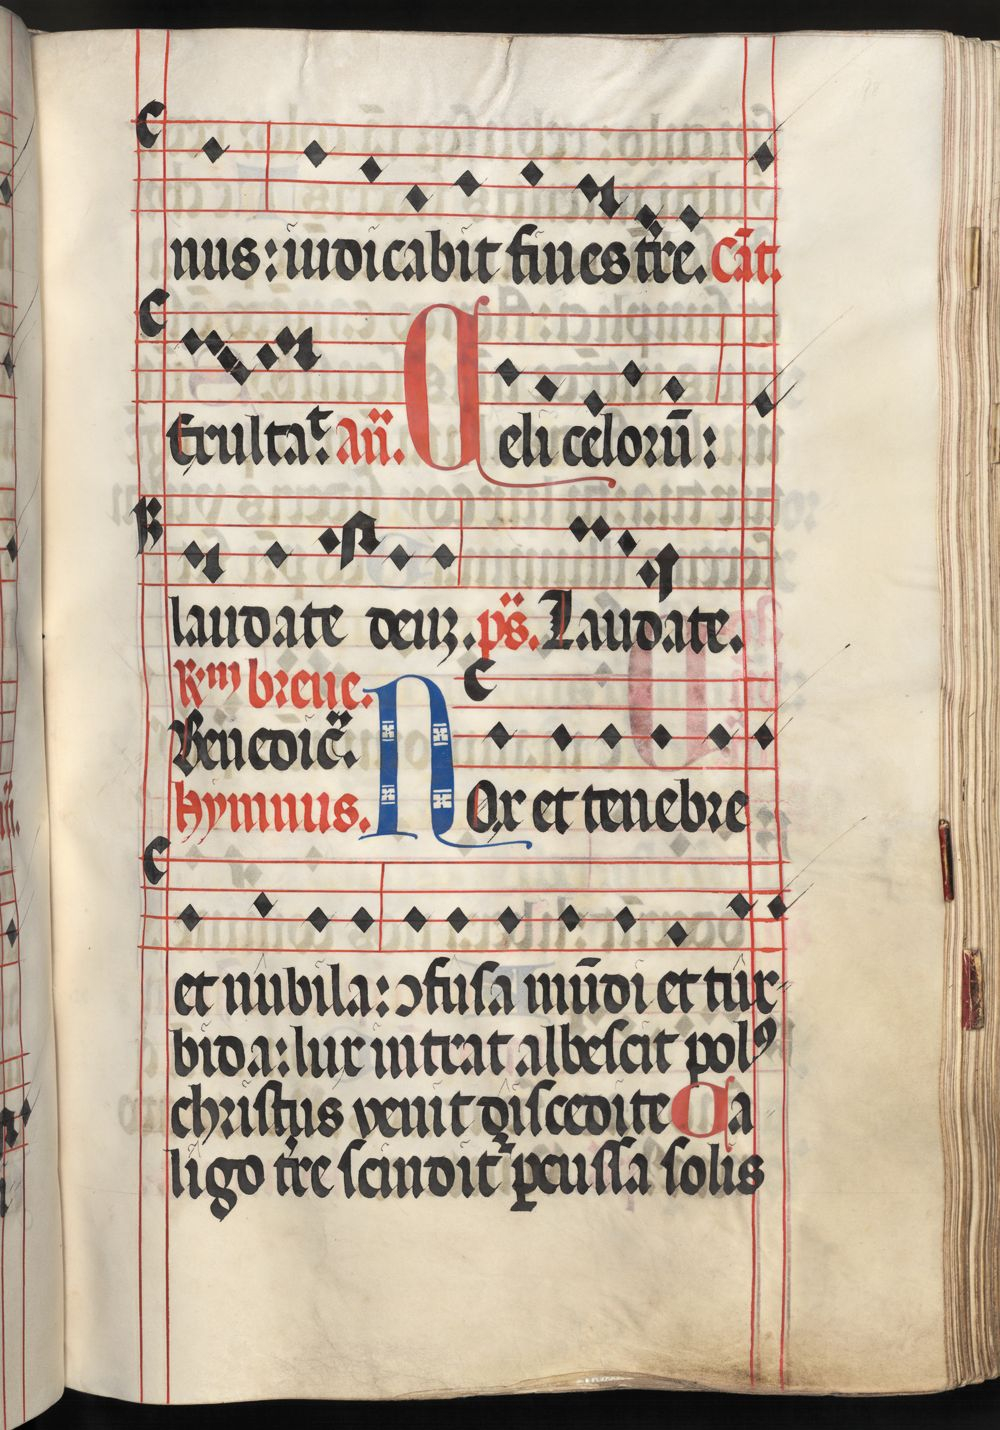 nus: iudicabit fines tr̄re. Cāt.
Exultaᵗ. añ. Celi celorū:
laudate deuʒ. ps̄. Laudate.
R.ᵐ breue.
Benedic̄.
hymnus. Nox et tenebre
et nubila: ↄfusa mūdi et tur-
bida: lux intrat albescit polꝰ
christus venit discedite Ca
ligo tr̄re scindit̃ ꝑcussa solis